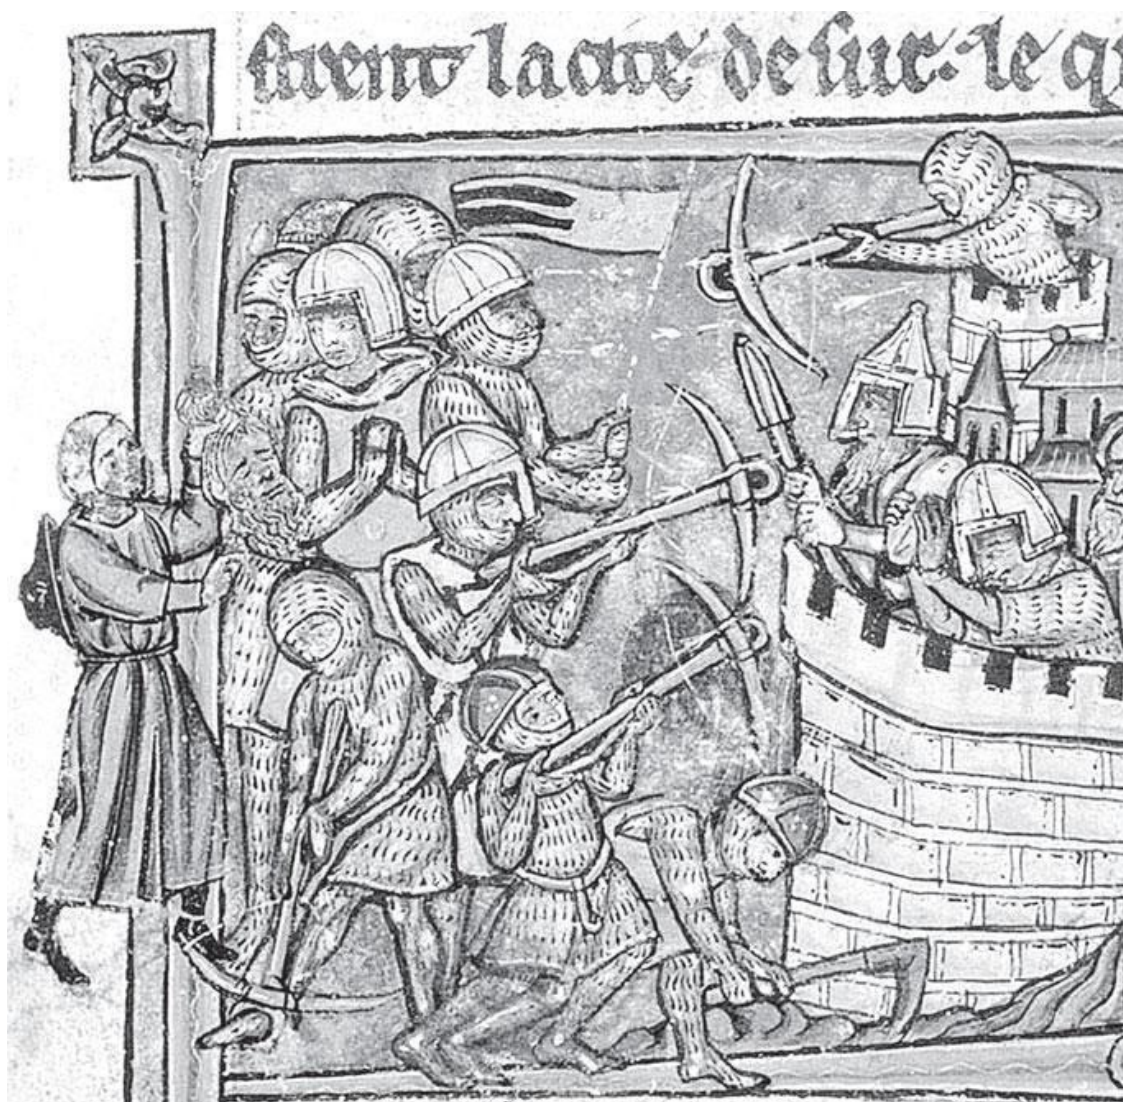 sirent la cite de sur · le q